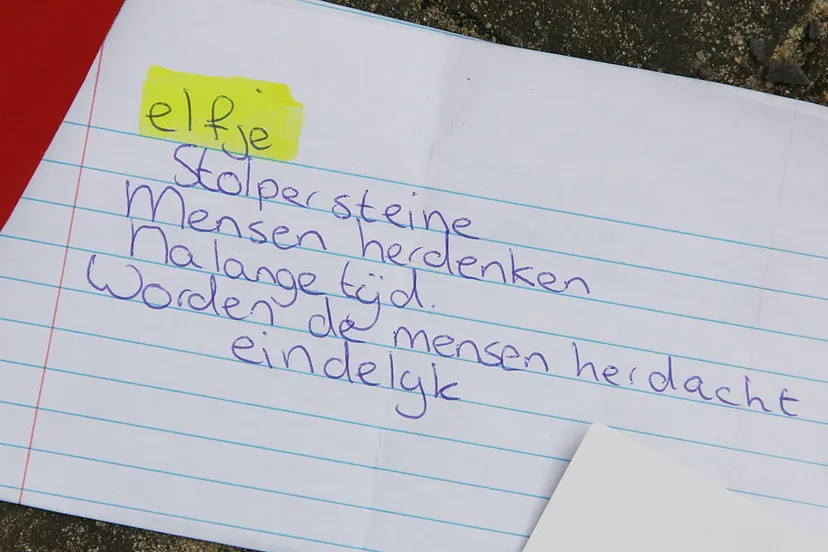 elfje
Stolpersteine
Mensen herdenken
na lange tijd.
Worden de mensen herdacht
eindelyk